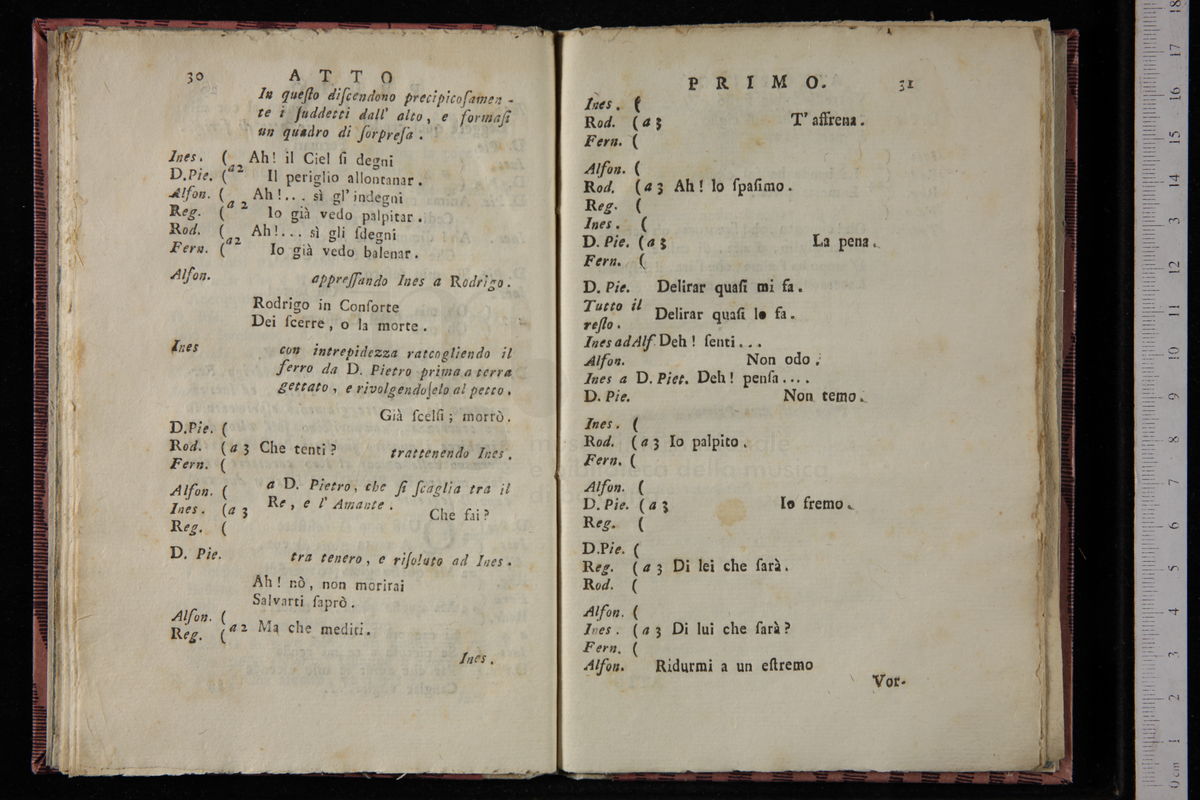 30 ATTO
In queſto diſcendono precipicoſamen-
te i ſuddetti dall' alto, e formaſi
un quadro di ſorpreſa.
Ines. ( Ah! il Ciel ſi degni
D.Pie. (a2 Il periglio allontanar.
Alfon. ( Ah!... sì gl' indegni
Reg. (a 2 Io già vedo palpitar.
Rod. ( Ah!... sì gli ſdegni
Fern. (a2 Io già vedo balenar.
Alfon. appreſſando Ines a Rodrigo.
Rodrigo in Conſorte
Dei ſcerre, o la morte.
Ines con intrepidezza ratcogliendo il
ferro da D. Pietro prima a terra
gettato, e rivolgendoſelo al petto.
Già ſcelſi; morrò.
D.Pie. (
Rod. (a 3 Che tenti? trattenendo Ines.
Fern. (
Alfon. ( a D. Pietro, che ſi ſcaglia tra il
Ines. (a 3 Re, e l' Amante. Che fai?
Reg. (
D. Pie. tra tenero, e riſoluto ad Ines.
Ah! nò, non morirai
Salvarti ſaprò.
Alfon. (
Reg. (a 2 Ma che mediti.
Ines.
PRIMO. 31
Ines. (
Rod. (a 3 T' affrena.
Fern. (
Alfon. (
Rod. (a 3 Ah! Io ſpaſimo.
Reg. (
Ines. (
D. Pie. (a 3 La pena.
Fern. (
D. Pie. Delirar quaſi mi fa.
Tutto il
reſto. Delirar quaſi lo fa.
Ines ad Alf. Deh! ſenti...
Alfon. Non odo.
Ines a D. Piet. Deh! penſa....
D. Pie. Non temo.
Ines. (
Rod. (a 3 Io palpito.
Fern. (
Alfon. (
D. Pie. (a 3 Io fremo.
Reg. (
D.Pie. (
Reg. (a 3 Di lei che ſarà.
Rod. (
Alfon. (
Ines. (a 3 Di lui che ſarà?
Fern. (
Alfon. Ridurmi a un eſtremo
Vor-